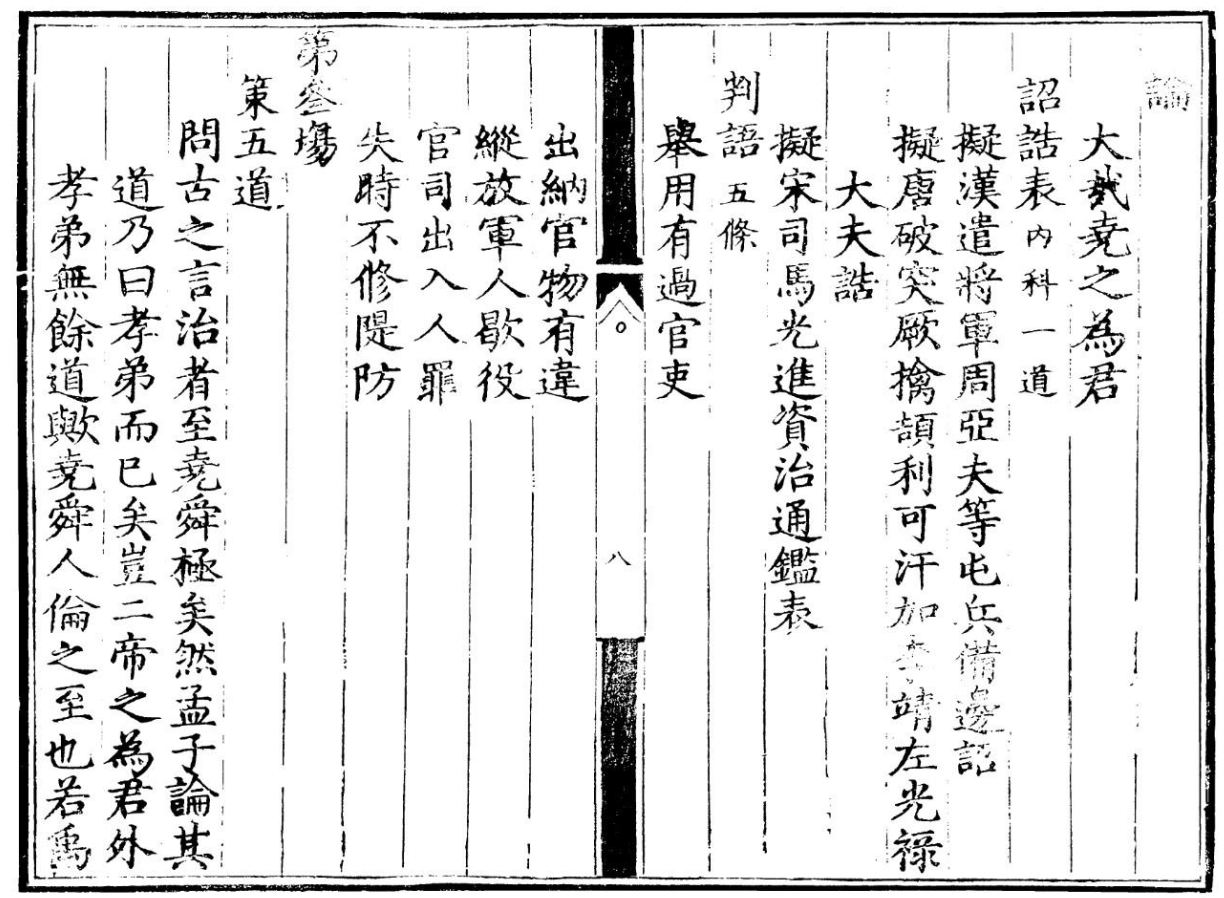 論
大哉堯之為君
詔誥表内科一道
擬漢遣將軍周亞夫等屯兵備邊詔
擬唐破突厥擒頡利可汗加李靖左光祿
大夫誥
擬宋司馬光進資治通鑑表
判語五條
舉用有過官吏
八
出納官物有違
縱放軍人歇役
官司出入人罪
失時不修隄防
第叄場
策五道
問古之言治者至堯舜極矣然孟子論其
道乃曰孝弟而已矣豈二帝之為君外
孝弟無餘道歟堯舜人倫之至也若禹